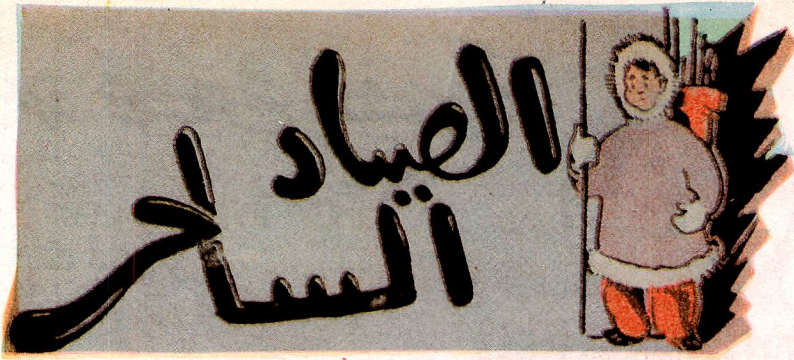 الصياد
الساحر